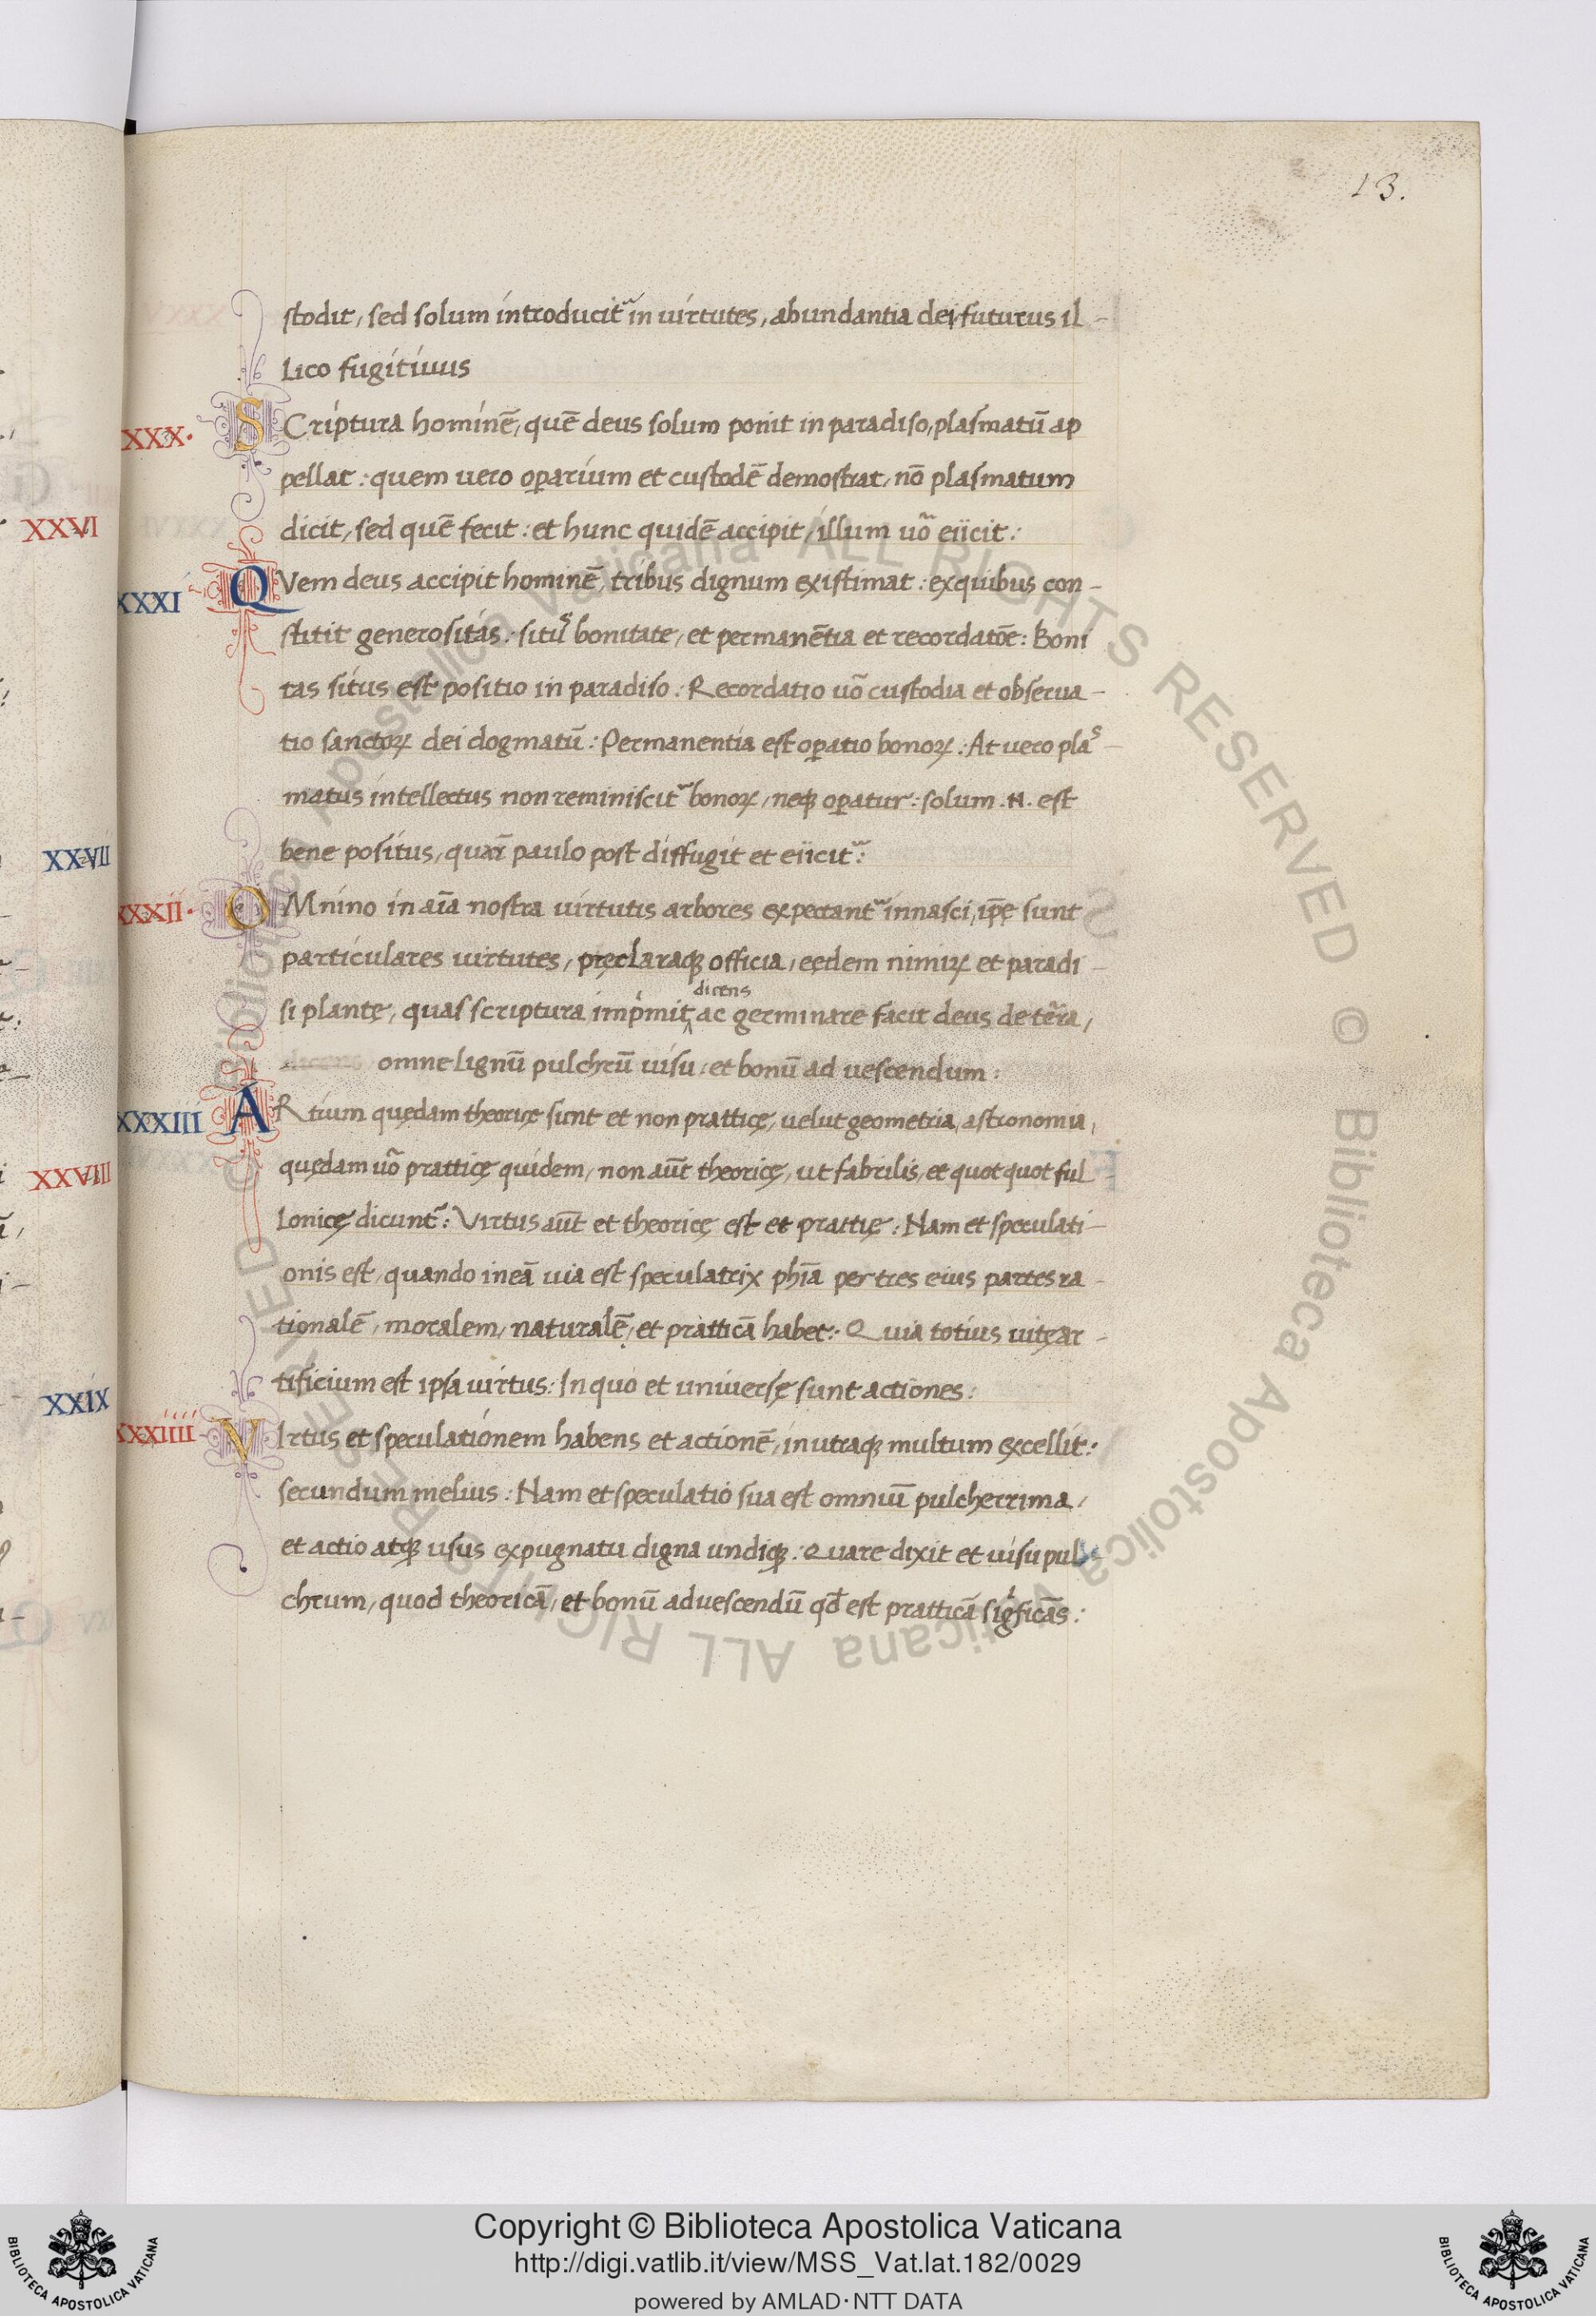 13.
stodit, sed solum introducit᷑ in uirtutes, abundantia dei futurus il-
lico fugitiuus
XXX. SCriptura hominē, quē deus solum ponit in paradiso, plasmatū ap
pellat: quem uero oꝑarium et custodē demostrat, nō plasmatum
dicit, sed quē fecit: et hunc quidē accipit, illum uo᷑ eiicit:
XXXI QVem deus accipit hominē, tribus dignum existimat: ex quibus con-
stitit generositas: situs bonitate, et permanētia et recordatōe: Boni
tas situs est positio in paradiso: Recordatio uō custodia et obserua-
tio sanctoꝝ dei dogmatū: Permanentia est oꝑatio bonoꝝ: At uero plas-
matus intellectus non reminiscit᷑ bonoꝝ, neqꝫ oꝑatur: solum .N. est
bene positus, paulo post diffugit et eiicit᷑:
XXXII. OMnino in aīa nostra uirtutis arbores expectant᷑ innasci, ip̄ę sunt
particulares uirtutes, pręclaraqꝫ officia, eędem nimiꝝ et paradi-
si plantę, quas scriptura imp̓mit dicens ac germinare facit deus de ter᷑a,
omne lignū pulchrū uisu: et bonū ad uescendum:
XXXIII ARtium quędam theoricę sunt et non pratticę, uelut geometria, astronomia,
quędam uō pratticę quidem, non aūt theoricę, ut fabrilis, et quot quot ful-
lonicę dicunt᷑: Virtus aūt et theoricę est et prattię: Nam et speculati-
onis est, quando in eā uia est speculatrix phīa per tres eius partes ra-
tionalē, moralem, naturalē, et pratticā habet: Quia totius uitę ar-
tificium est ipsa uirtus: In quo et uniuersę sunt actiones:
XXXIIII VIrtus et speculationem habens et actionē, in utraqꝫ multum excellit:
secundum melius: Nam et speculatio sua est omniū pulcherrima,
et actio atqꝫ usus expugnatu digna undiqꝫ: Quare dixit et uisu pul-
chrum, quod theoricā, et bonū ad uescendū qd̄ est pratticā sig̓ficās:
XXVI
XXVII
XXVIII
XXIX
© Biblioteca Apostolica Vaticana ALL RIGHTS RESERVED © Biblioteca Apostolica Vaticana ALL RIGHTS RESERVED
Copyright © Biblioteca Apostolica Vaticana
http://digi.vatlib.it/view/MSS_Vat.lat.182/0029
powered by AMLAD·NTT DATA
BIBLIOTECA APOSTOLICA VATICANA
BIBLIOTECA APOSTOLICA VATICANA